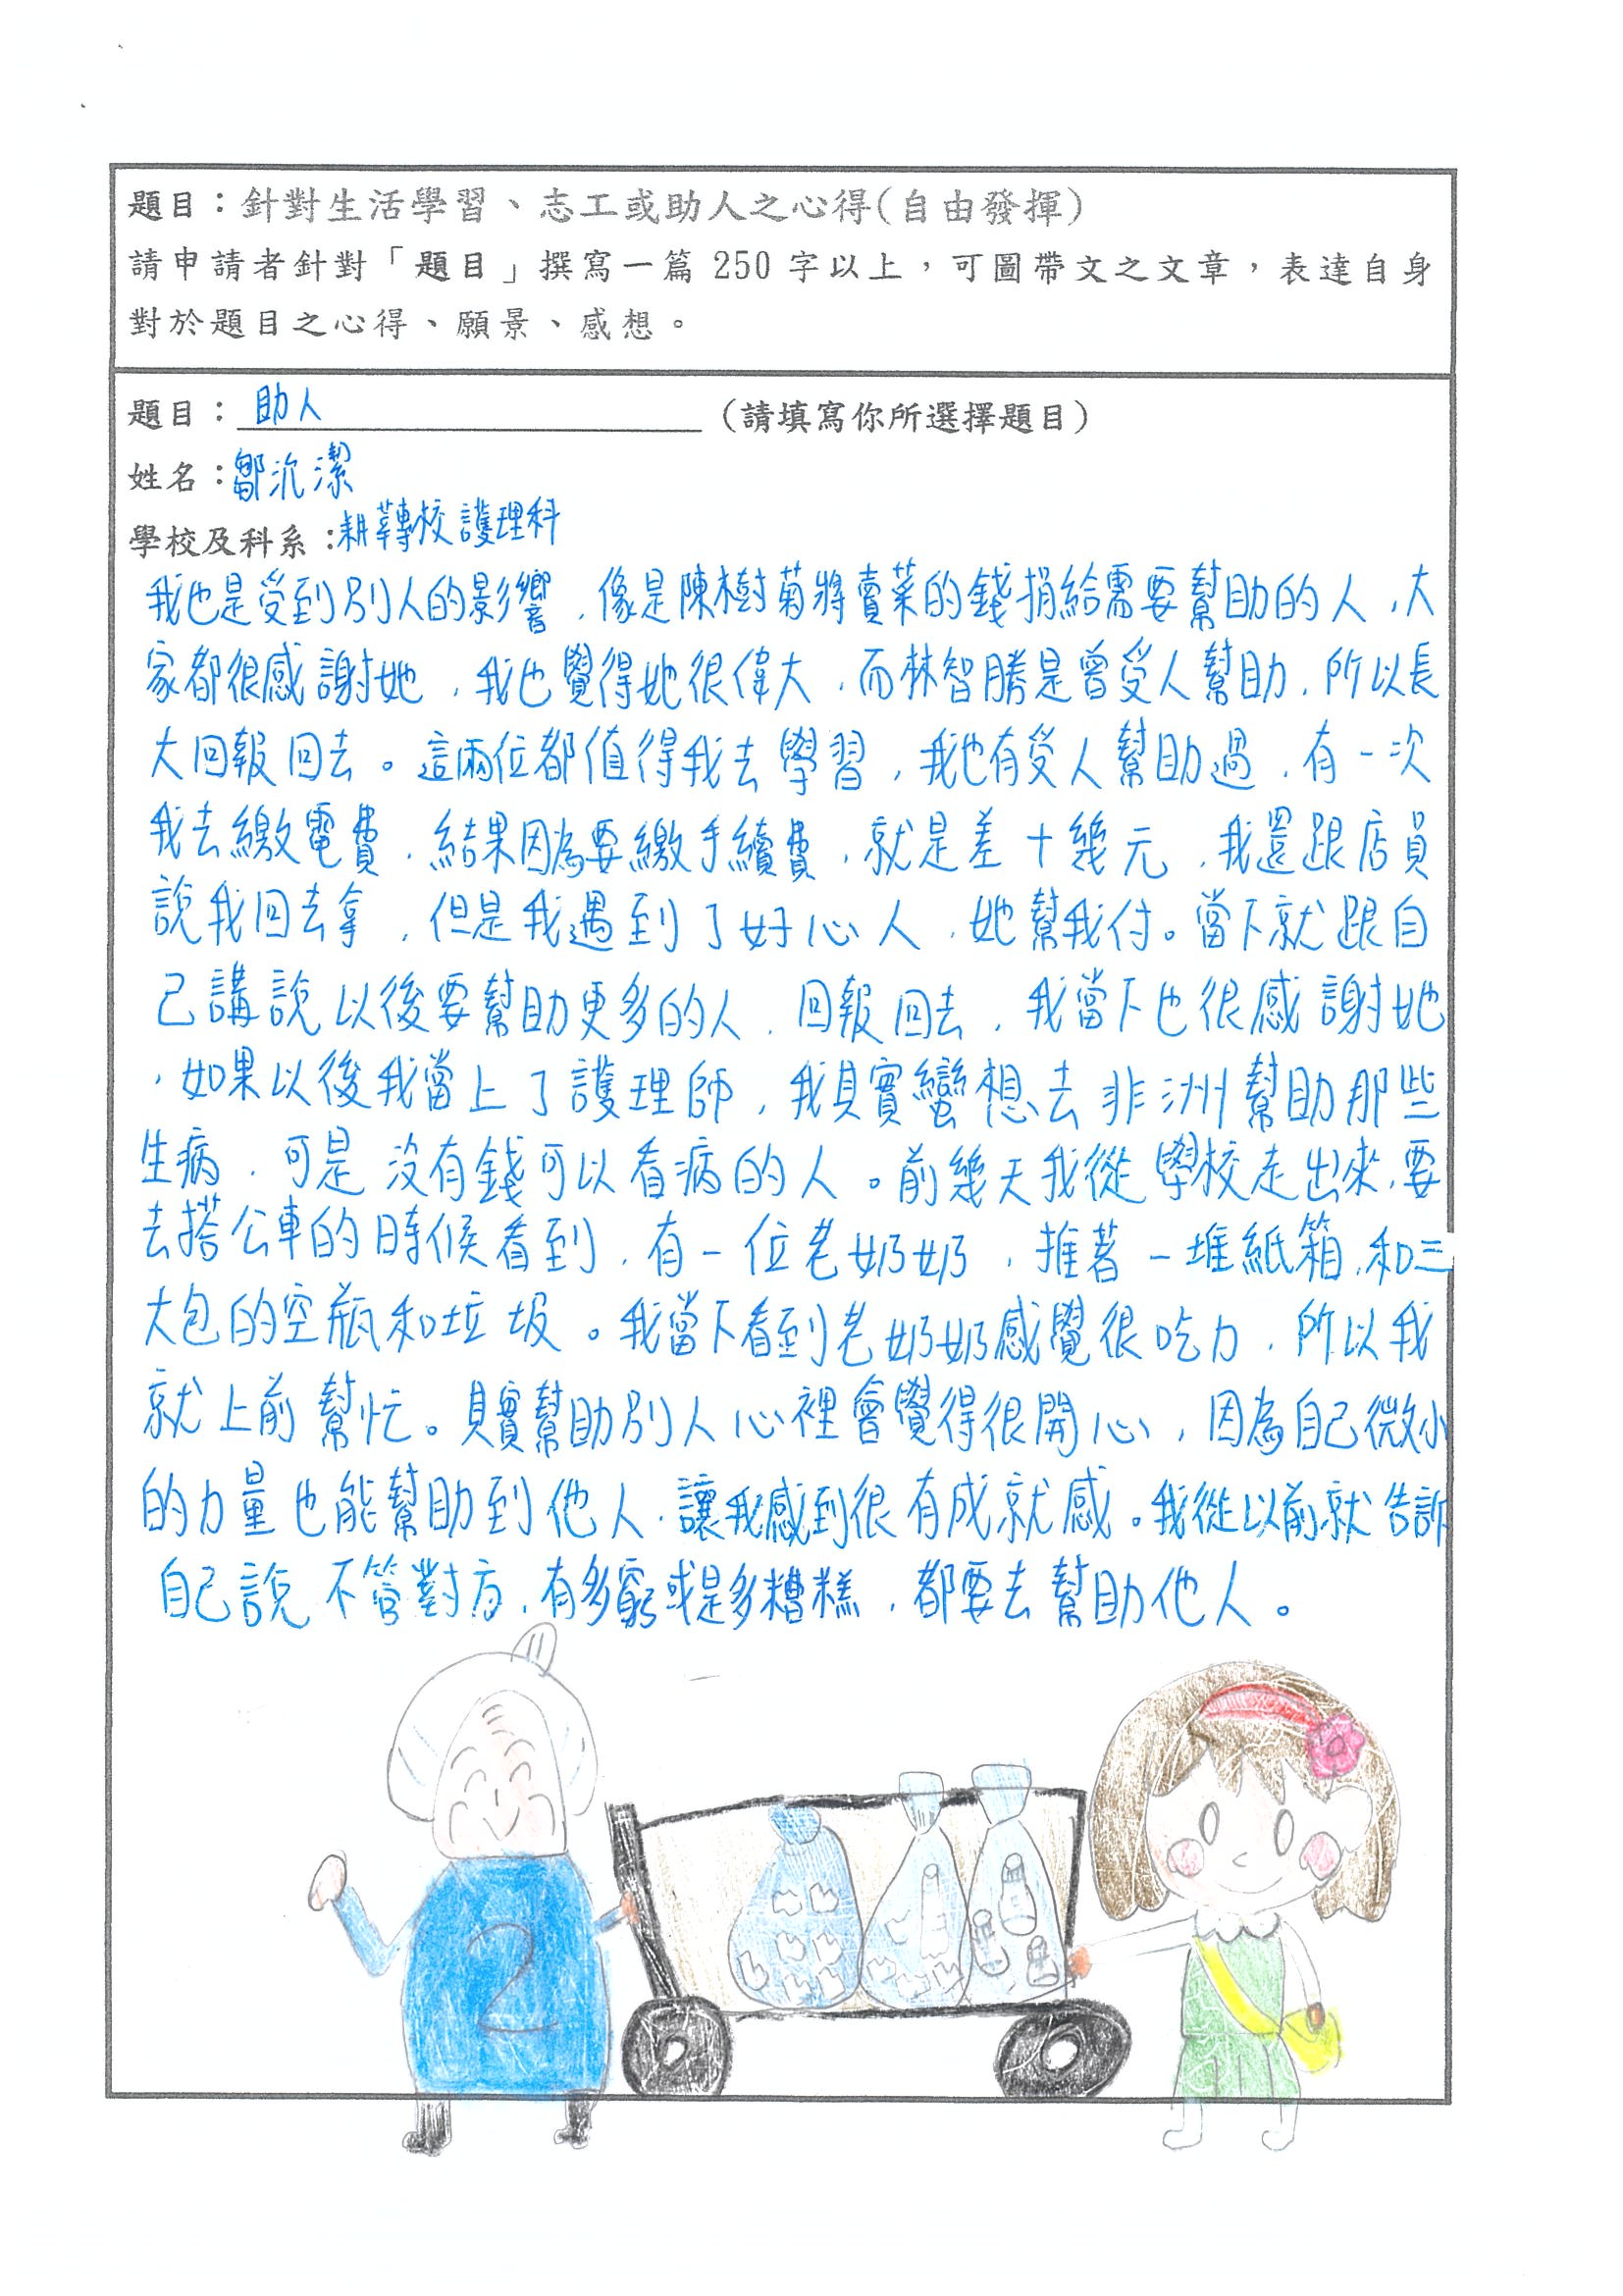 題目：針對生活學習、志工或助人之心得(自由發揮)
請申請者針對「題目」撰寫一篇 250 字以上，可圖帶文之文章，表達自身
對於題目之心得、願景、感想。
題目：助人（請填寫你所選擇題目）
姓名：鄒沇潔
學校及科系：耕莘專校護理科
我也是受到別人的影響，像是陳樹菊將賣菜的錢捐給需要幫助的人，大
家都很感謝她，我也覺得她很偉大，而林智勝是曾受人幫助，所以長
大回報回去。這兩位都值得我去學習，我也有受人幫助過，有一次
我去繳電費，結果因為要繳手續費，就是差十幾元，我還跟店員
說我回去拿，但是我遇到了好心人，她幫我付。當下就跟自
己講說以後要幫助更多的人，回報回去，我當下也很感謝她
，如果以後我當上了護理師，我其實蠻想去非洲幫助那些
生病，可是沒有錢可以看病的人。前幾天我從學校走出來，要
去搭公車的時候看到，有一位老奶奶，推著一堆紙箱，和三
大包的空瓶和垃圾。我當下看到老奶奶感覺很吃力，所以我
就上前幫忙。其實幫助別人心裡會覺得很開心，因為自己微小
的力量也能幫助到他人，讓我感到很有成就感。我從以前就告訴
自己說不管對方，有多窮或是多糟糕，都要去幫助他人。
2